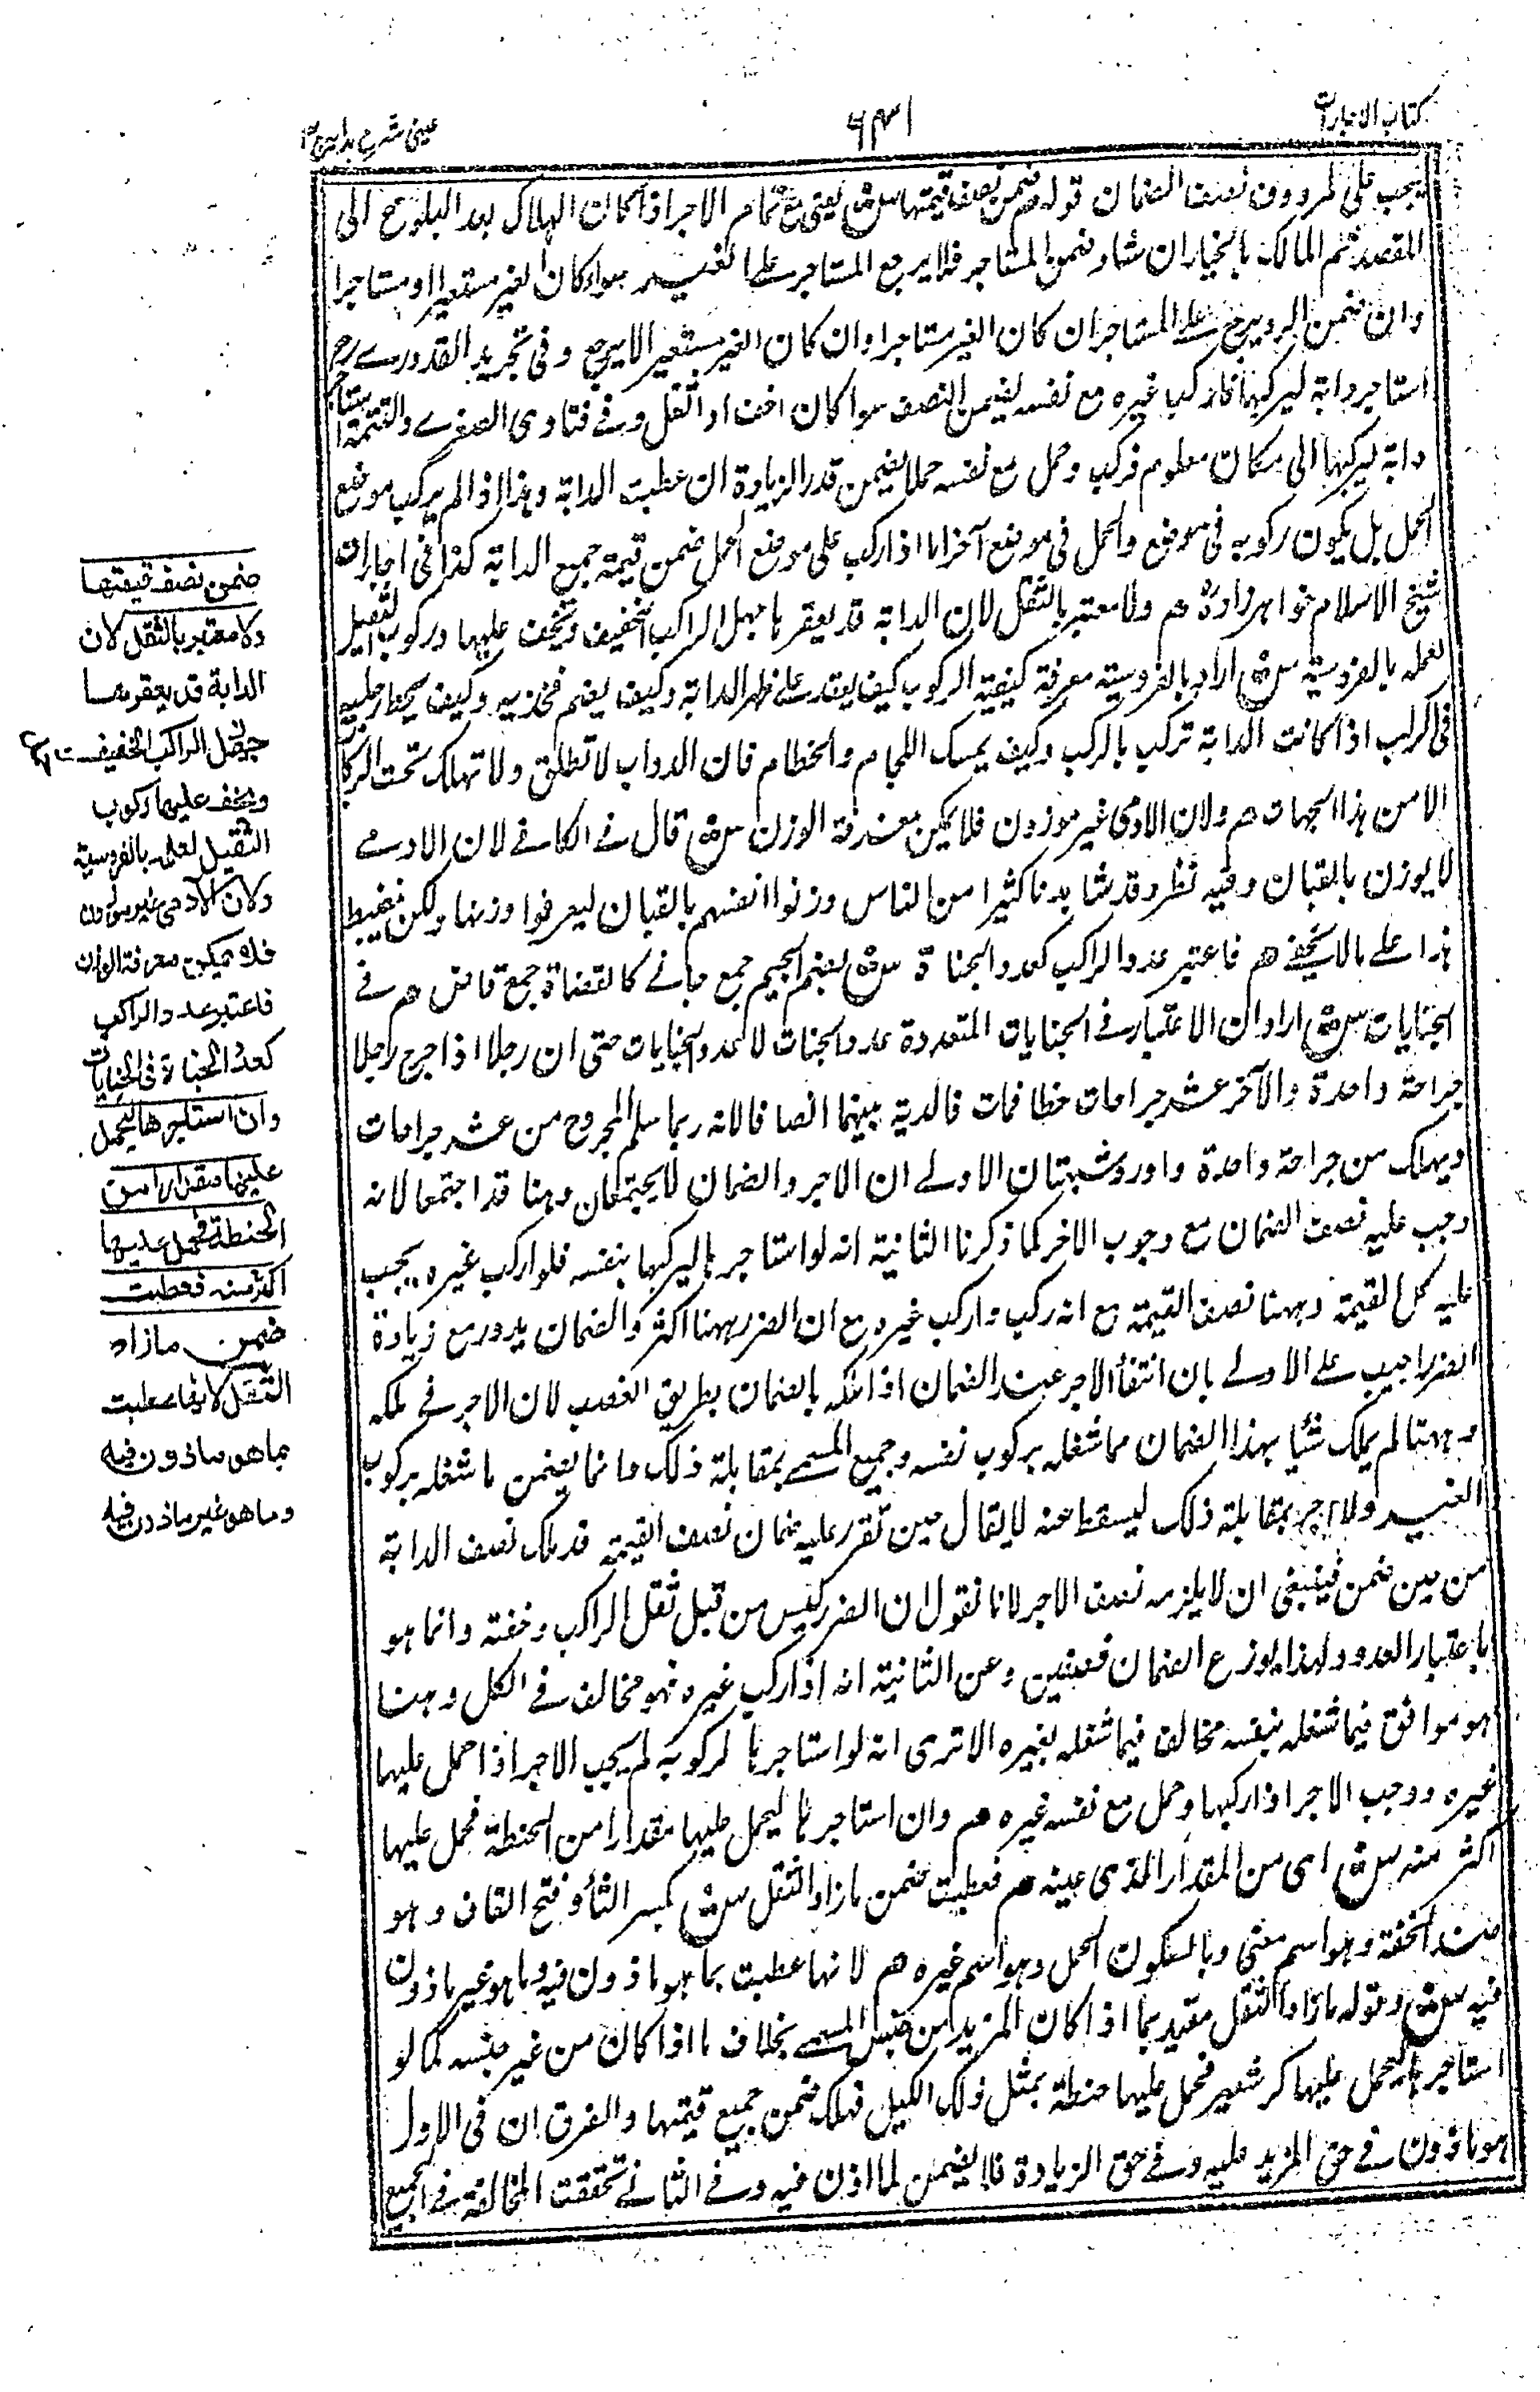 كتاب الاجارات
٦٣١
عينى شرح هدايه ج ٣
يجب على المردوف نصف الضمان قوله م ضمن نصف قيمتها ش يعنى مع تمام الاجر اذا كان الهلاك بعد البلوغ الى
المقصد ثم المالك بالخيار ان شاء ضمن المستاجر فلا يرجع المستاجر على الغير سواء كان الغير مستعيرا او مستاجرا
وان ضمن الرديف يرجع على المستاجر ان كان الغير مستاجرا وان كان الغير مستعيرا لا يرجع وفى تجريد القدورى رحم
استاجر دابة ليركبها فاركب غيره مع نفسه يضمن النصف سوا كان اخف او اثقل وفى فتاوى الصغرى والتتمة استاجر
دابة ليركبها الى مكان معلوم فركب وحمل مع نفسه حملا يضمن قدر الزيادة ان عطبت الدابة وهذا اذا لم يركب موضع
الحمل بل يكون ركوبه فى موضع والحمل فى موضع آخر اما اذا ركب على موضع الحمل ضمن قيمة جميع الدابة كذا فى اجارات
شيخ الاسلام خواهر زاده م ولا معتبر بالثقل لان الدابة قد يعقرها جهل الراكب الخفيف ويخف عليها ركوب الثقيل
لعلمه بالفروسية ش اراد بالفروسية معرفة كيفية الركوب كيف يقعد على ظهر الدابة وكيف يضم فخذيه وكيف يحط رجليه
فى الركب اذا كانت الدابة تركب بالركب وكيف يمسك اللجام والخطام فان الدواب لا تطلق ولا تهلك تحت الركاب
الا من هذا الجهات م ولان الادمى غير موزون فلا يمكن معرفة الوزن ش قال فى الكافى لان الادمى
لا يوزن بالقبان وفيه نظر وقد شاهدنا كثيرا من الناس وزنوا انفسهم بالقبان ليعرفوا وزنها ولكن
هذا على ما لا يخفى م فاعتبر عدد الراكب كعدد الجناة ش بضم الجيم جمع جانى كالقضاة جمع قاض م فى
الجنايات ش اراد ان الاعتبار فى الجنايات المتعددة عدد الجنات لا عدد الجنايات حتى ان رجلا اذا جرح رجلا
جراحة واحدة والآخر عشر جراحات خطا فمات فالدية بينهما انصافا لانه ربما سلم المجروح من عشر جراحات
ويهلك من جراحة واحدة واورد شبهتان الاولى ان الاجر والضمان لا يجتمعان وهنا قد اجتمعا لانه
وجب عليه نصف الضمان مع وجوب الاخر كما ذكرنا الثانية انه لو استاجرها ليركبها بنفسه فلو اركب غيره يجب
عليه كل القيمة وههنا نصف القيمة مع انه ركب واركب غيره مع ان الضرر ههنا اكثر والضمان يدور مع زيادة
الضرر اجيب على الاولى بان انتفأ الاجر عند الضمان اذا ملكه بالضمان بطريق الغصب لان الاجر فى ملكه
وههنا لم يملك شئيا بهذا الضمان مما شغله بركوب نفسه وجميع المسمى بمقابلة ذلك وانما يضمن ما شغله بركوب
الغير ولا اجر بمقابلة ذلك ليسقط عنه لا يقال حين تقرر عليه ضمان نصف القيمة قد ملك نصف الدابة
من حين ضمن فينبغى ان لا يلزمه نصف الاجر لانا نقول ان الضرر ليس من قبل ثقل الراكب وخفته وانما هو
باعتبار العدد ولهذا يوزع الضمان نصفين وعن الثانية انه اذا اركب غيره فهو مخالف فى الكل وهنا
هو موافق فيما شغله بنفسه مخالف فيما شغله بغيره الا ترى انه لو استاجرها لركوبه لم يجب الاجر اذا حمل عليها
غيره ووجب الاجر اذا ركبها وحمل مع نفسه غيره م وان استاجرها ليحمل عليها مقدارا من الحنطة فحمل عليها
اكثر منه ش اى من المقدار الذى عينه م فعطبت ضمن ما زاد الثقل ش بكسر الثأ وفتح القاف وهو
ضد الخفة وهو اسم معنى وبالسكون الحمل وهو اسم غيره م لانها عطبت بما هو ماذون فيه وما هو غير ماذون
فيه ش وقوله ما زاد الثقل مقيد بما اذا كان المزيد من جنس المسمى بخلاف ما اذا كان من غير جنسه كما لو
استاجرها ليحمل عليها كر شعير فحمل عليها حنطة بمثل ذلك الكيل فهلك ضمن جميع قيمتها والفرق ان فى الاول
هو ماذون فى حق المزيد عليه وفى حق الزيادة فلا يضمن لما اذن فيه وفى الثانى تحققت المخالفة فى الجميع
ضمن نصف قيمتها
ولا معتبر بالثقل لان
الدابة قد يعقرها
جهل الراكب الخفيف
ويخف عليها ركوب
الثقيل لعلمه بالفروسية
ولان الآدمى غير موزون
فلا يمكن معرفة الوزن
فاعتبر عدد الراكب
كعدد الجناة فى الجنايات
وان استاجرها ليحمل
عليها مقدارا من
الحنطة فحمل عليها
اكثر منه فعطبت
ضمن ما زاد
الثقل لانها عطبت
بما هو ماذون فيه
وما هو غير ماذون فيه